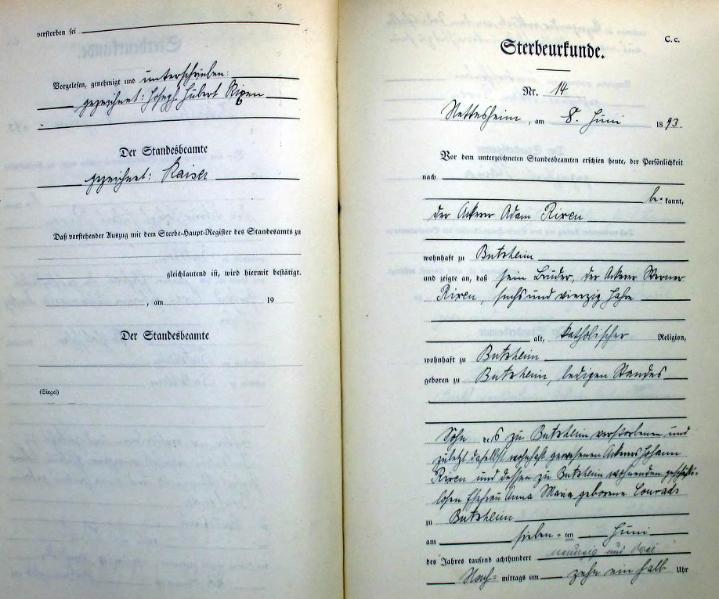 verstorben sei
Vorgelesen, genehmigt und unterschrieben:
gezeichnet: Joseph Hubert Rixen
Der Standesbeamte
gezeichnet: Kaiser
Daß vorstehender Auszug mit dem Sterbe-Haupt-Register des Standesamts zu
gleichlautend ist, wird hiermit bestätigt.
, am 19
Der Standesbeamte
(Siegel)
C. c.
Sterbeurkunde.
Nr. 14
Nettesheim, am 8. Juni 1893.
Vor dem unterzeichneten Standesbeamten erschien heute, der Persönlichkeit
nach
be-kannt,
der Ackerer Adam Rixen
wohnhaft zu Butzheim
und zeigte an, daß sein Bruder, der Ackerer Werner
Rixen, sechs und vierzig Jahre
alt, katholischer Religion,
wohnhaft zu Butzheim
geboren zu Butzheim, ledigen Standes
Sohn des zu Butzheim verstorbenen und
zuletzt daselbst wohnhaft gewesenen Ackerers Johann
Rixen und dessen zu Butzheim wohnenden geschäft-
losen Ehefrau Anna Maria geborene Conrads
zu Butzheim
am sieben-ten Juni
des Jahres tausend achthundert neunzig und drei
Nach-mittags um zehn ein halb Uhr